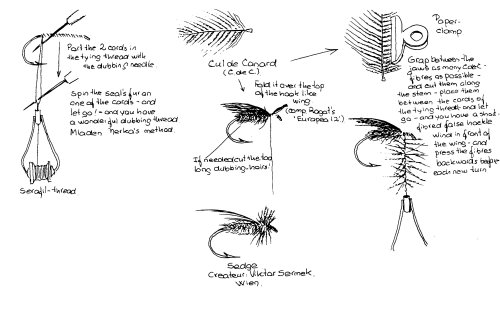 Part the 2 cords in
the tying thread with
the dubbing needle
Spin the seal's fur on
one of the cords - and
let go! - and you have
a wonderful dubbing thread
Mladen Merkas method.
Serafil-thread
Cul de Canard
(C. de C.)
Fold it over the top
of the hook like
wing
(comp. Roget's
'Europea 12')
If needed cut the too
long dubbing-hairs!
Sedge
Createur: Viktor Sermek.
Wien.
Paper-
clamp
Grap between the
jaws as many CdeC-
fibres as possible -
and cut them along
the stem - place them
between the cords of
the tying thread - let
go - and you have a
fibred false hackle
wind in front of
the wing - and
press the fibres
backwards before
each new turn